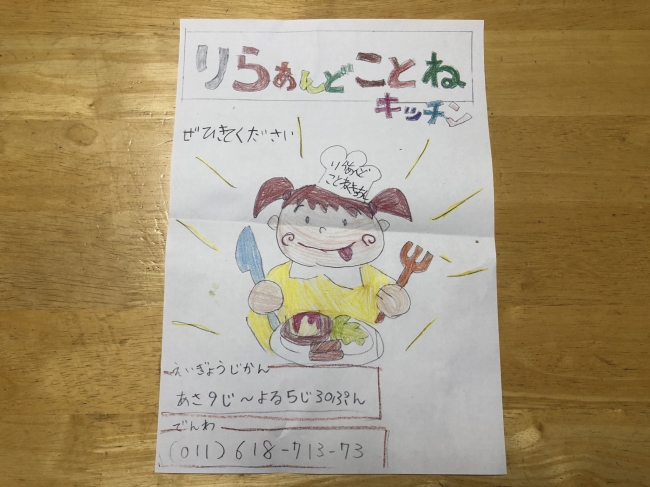 りらぁんどことね
キッチン
ぜひきてください
りらあんど
ことねきっちん
えいぎょうじかん
あさ9じ～よる5じ30ぷん
でんわ
(011)618-713-73